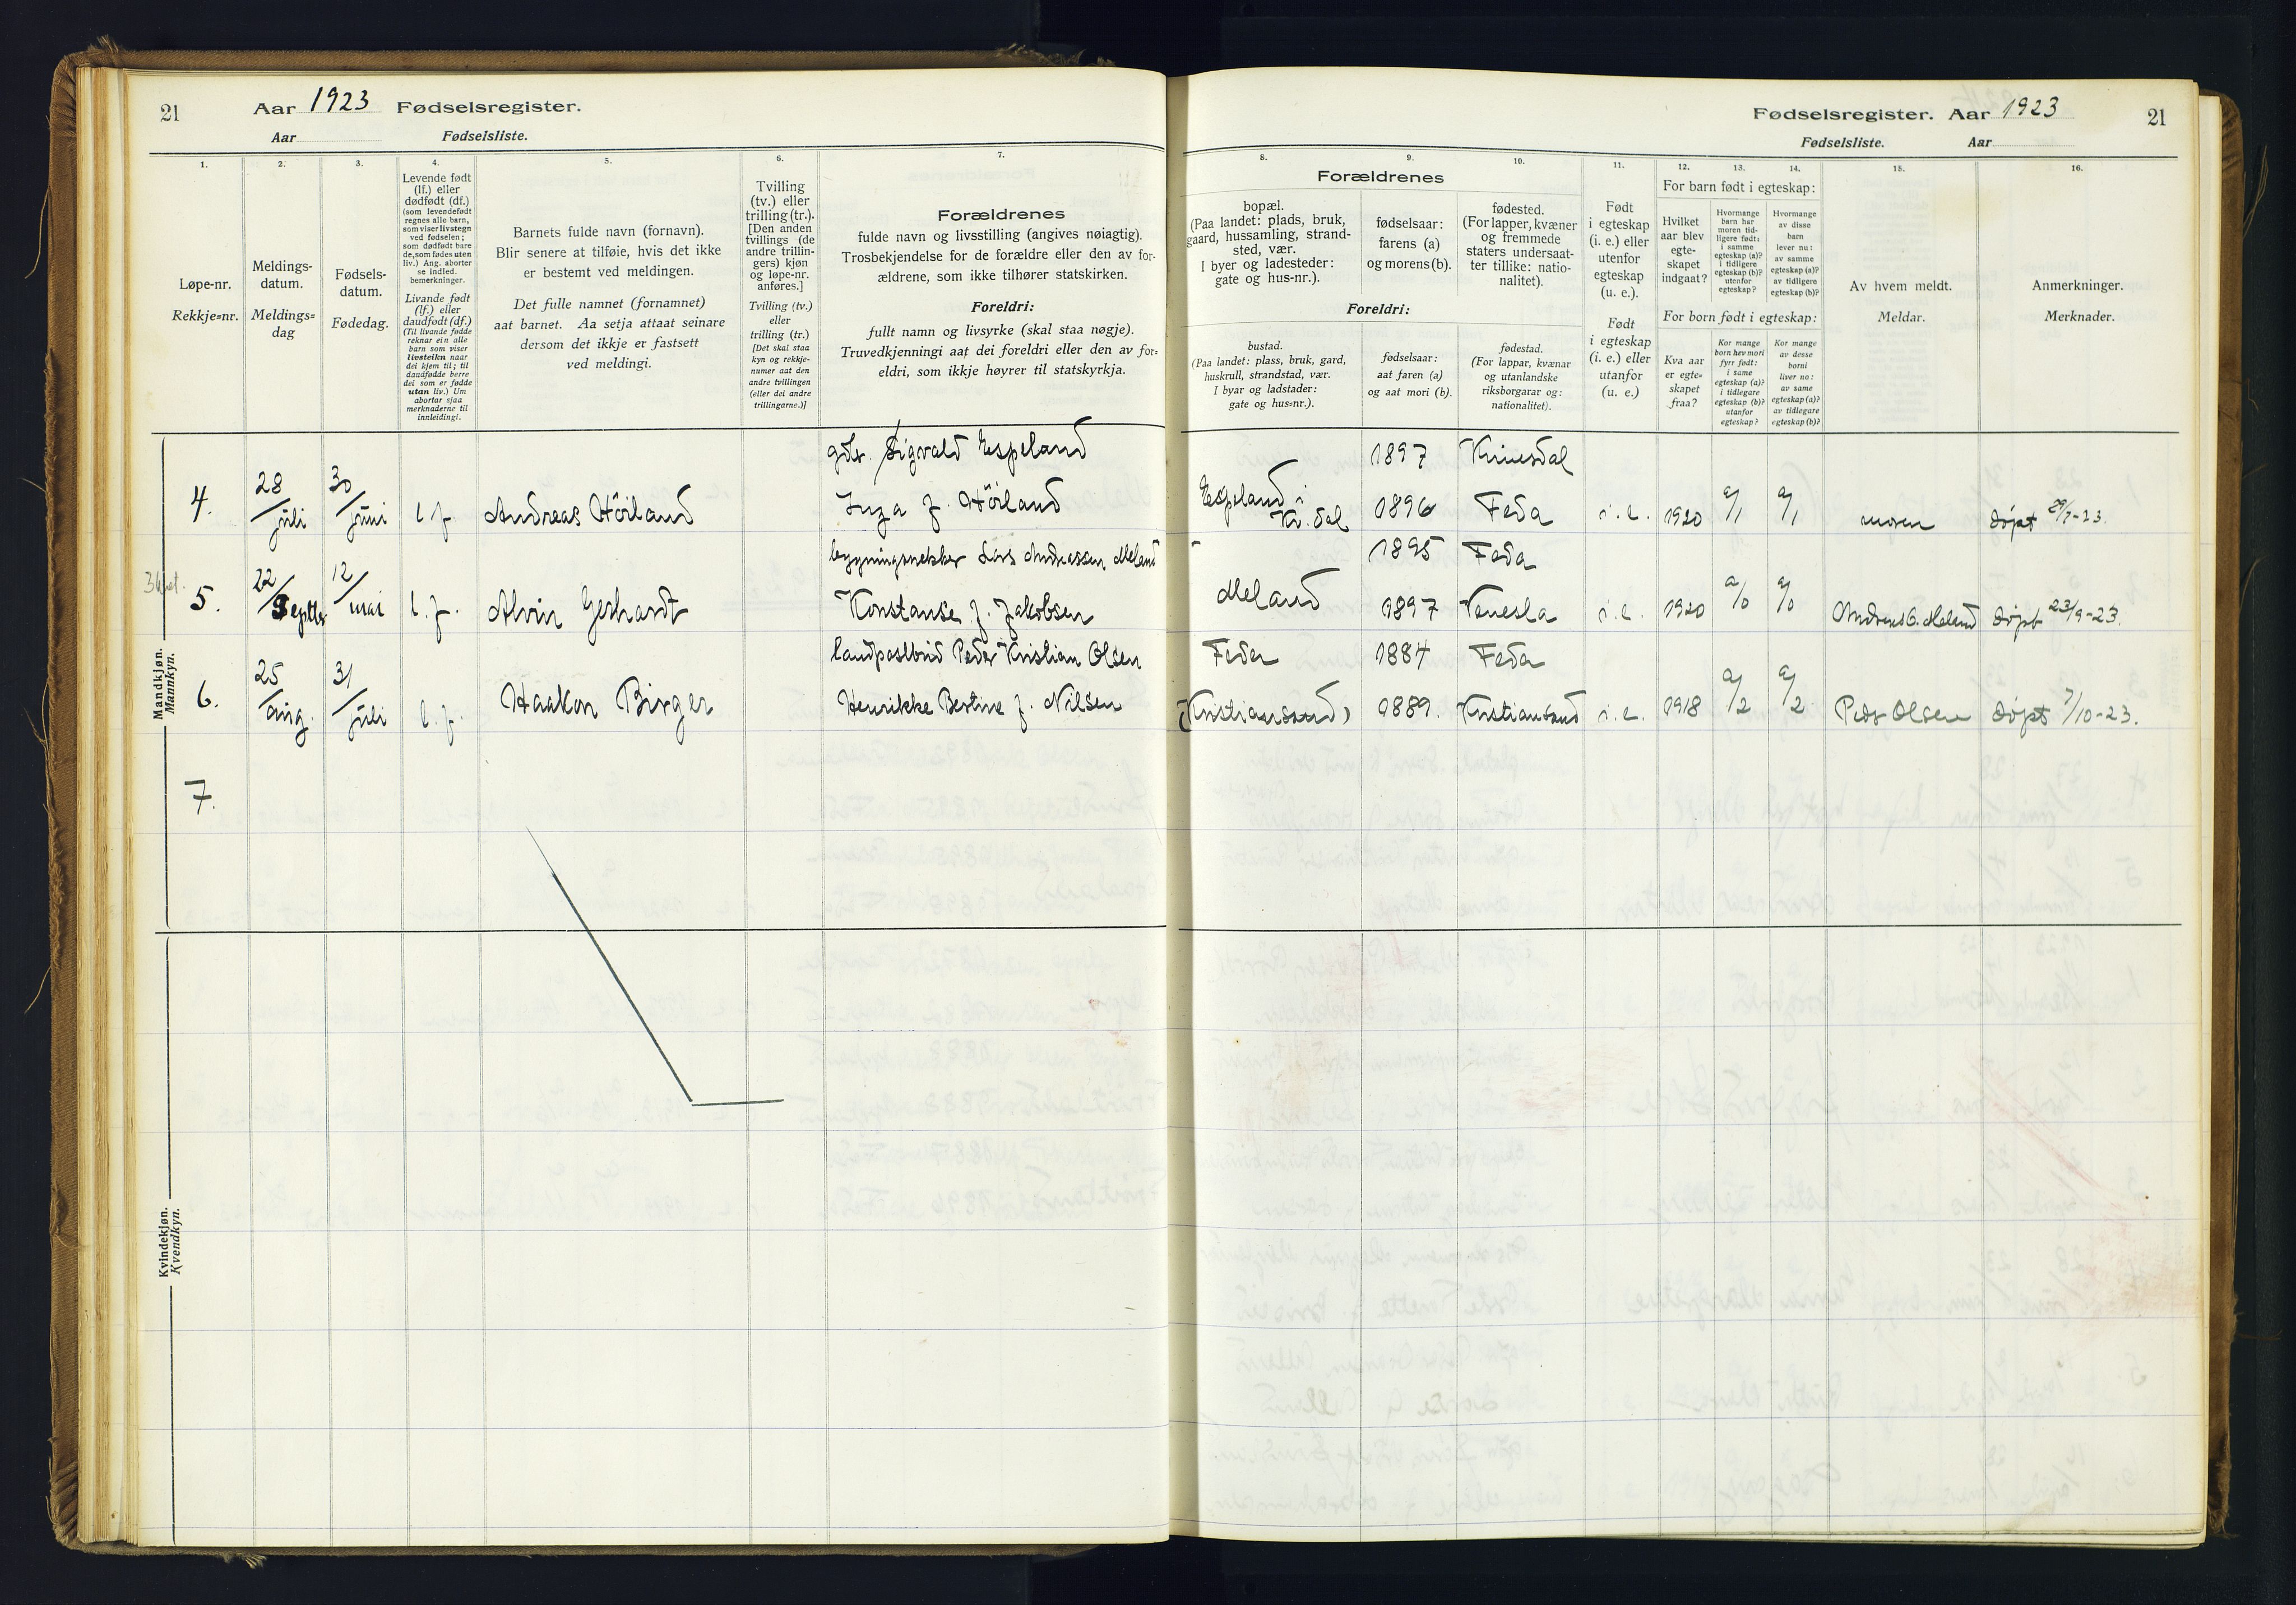 21 Aar 1923 Fødselsregister.
Aar Fødselsliste.
1. 2. 3. 4. 5. 6. 7.
Løpe-nr.
Rekkje=nr.
Meldings-
datum.
Meldings=
dag
Fødsels-
datum.
Fødedag.
Levende født
(lf.) eller
dødfødt (df.)
(som levendefødt
regnes alle barn,
som viser livstegn
ved fødselen;
som dødfødt bare
de, som fødes uten
liv.) Ang. aborter
se indled.
bemerkninger.
Livande født
(lf.) eller
daudfødt (df.)
(Til livande fødde
reknar ein alle
barn som viser
livsteikn naar
dei kjem til; til
daudfødde berre
dei som er fødde
utan liv.) Um
abortar sjaa
merknaderne til
innleidingi.
Barnets fulde navn (fornavn).
Blir senere at tilføie, hvis det ikke
er bestemt ved meldingen.
Det fulle namnet (fornamnet)
aat barnet. Aa setja attaat seinare
dersom det ikkje er fastsett
ved meldingi.
Tvilling
(tv.) eller
trilling (tr.).
[Den anden
tvillings (de
andre trillin-
gers) kjøn
og løpe-nr.
anføres.]
Tvilling (tv.)
eller
trilling (tr.)
[Det skal staa
kyn og rekkje-
numer aat den
andre tvillingen
(eller dei andre
trillingarne.)]
Forældrenes
fulde navn og livsstilling (angives nøiagtig).
Trosbekjendelse for de forældre eller den av for-
ældrene, som ikke tilhører statskirken.
Foreldri:
fullt namn og livsyrke (skal staa nøgje).
Truvedkjenningi aat dei foreldri eller den av for=
eldri, som ikkje høyrer til statskyrkja.
Mandkjøn.
Mannkyn.
gbr. Sigvald Espeland
4. 28/juli 30/juni l.f. Andreas Höiland Inga f. Höiland
bygningssnekker Lars Andreassen Meland
5. 22/Septbr 12/mai l.f. Alvin Gerhardt Konstanse f. Jakobsen
landpostbud Peder Kristian Olsen
6. 25/aug. 31/juli l.f. Haakon Birger Henrikke Bertine f. Nilsen
7.
Kvindekjøn.
Kvendkyn.
Fødselsregister. Aar 1923 21
Fødselsliste. Aar
8. 9. 10. 11. 12. 13. 14. 15. 16.
Forældrenes
bopæl.
(Paa landet: plads, bruk,
gaard, hussamling, strand-
sted, vær.
I byer og ladesteder:
gate og hus-nr.).
fødselsaar:
farens (a)
og morens (b).
fødested.
(For lapper, kvæner
og fremmede
staters undersaat-
ter tillike: natio-
nalitet).
Foreldri:
bustad.
(Paa landet: plass, bruk, gard,
huskrull, strandstad, vær.
I byar og ladstader:
gate og hus=nr.).
fødselsaar:
aat faren (a)
og aat mori (b).
fødestad.
(For lappar, kvænar
og utanlandske
riksborgarar og:
nationalitet).
Født
i egteskap
(i. e.) eller
utenfor
egteskap
(u. e.).
Født
i egteskap
(i. e.) eller
utanfor
(u. e.)
For barn født i egteskap:
Hvilket
aar blev
egte-
skapet
indgaat?
Hvormange
barn har
moren tid-
ligere født:
i samme
egteskap (a)?
i tidligere
egteskap (b)?
utenfor
egteskap?
Hvormange
av disse
barn
lever nu:
av samme
egteskap (a)?
av tidligere
egteskap (b)?
For born født i egteskap:
Kva aar
er egte=
skapet
fraa?
Kor mange
born hev mori
fyrr født:
i same
egteskap (a)?
i tidlegare
egteskap (b)?
utanfor
egteskap?
Kor mange
av desse
borni
liver no:
av same
egteskap (a)?
av tidlegare
egteskap (b)?
Av hvem meldt.
Meldar.
Anmerkninger.
Merknader.
1897 Kvinesdal
Espeland i
Kv.dal 1896 Feda i.e. 1920 a/1 a/1 moren døpt 29/7-23.
1895 Feda
Meland 1897 Venesla i.e. 1920 a/0 a/0 Andreas G. Meland døpt 23/9-23.
Feda 1884 Feda
(Kristiansand) 1889. Kristiansand i.e. 1918 a/2 a/2 Peder Olsen døpt 7/10-23.